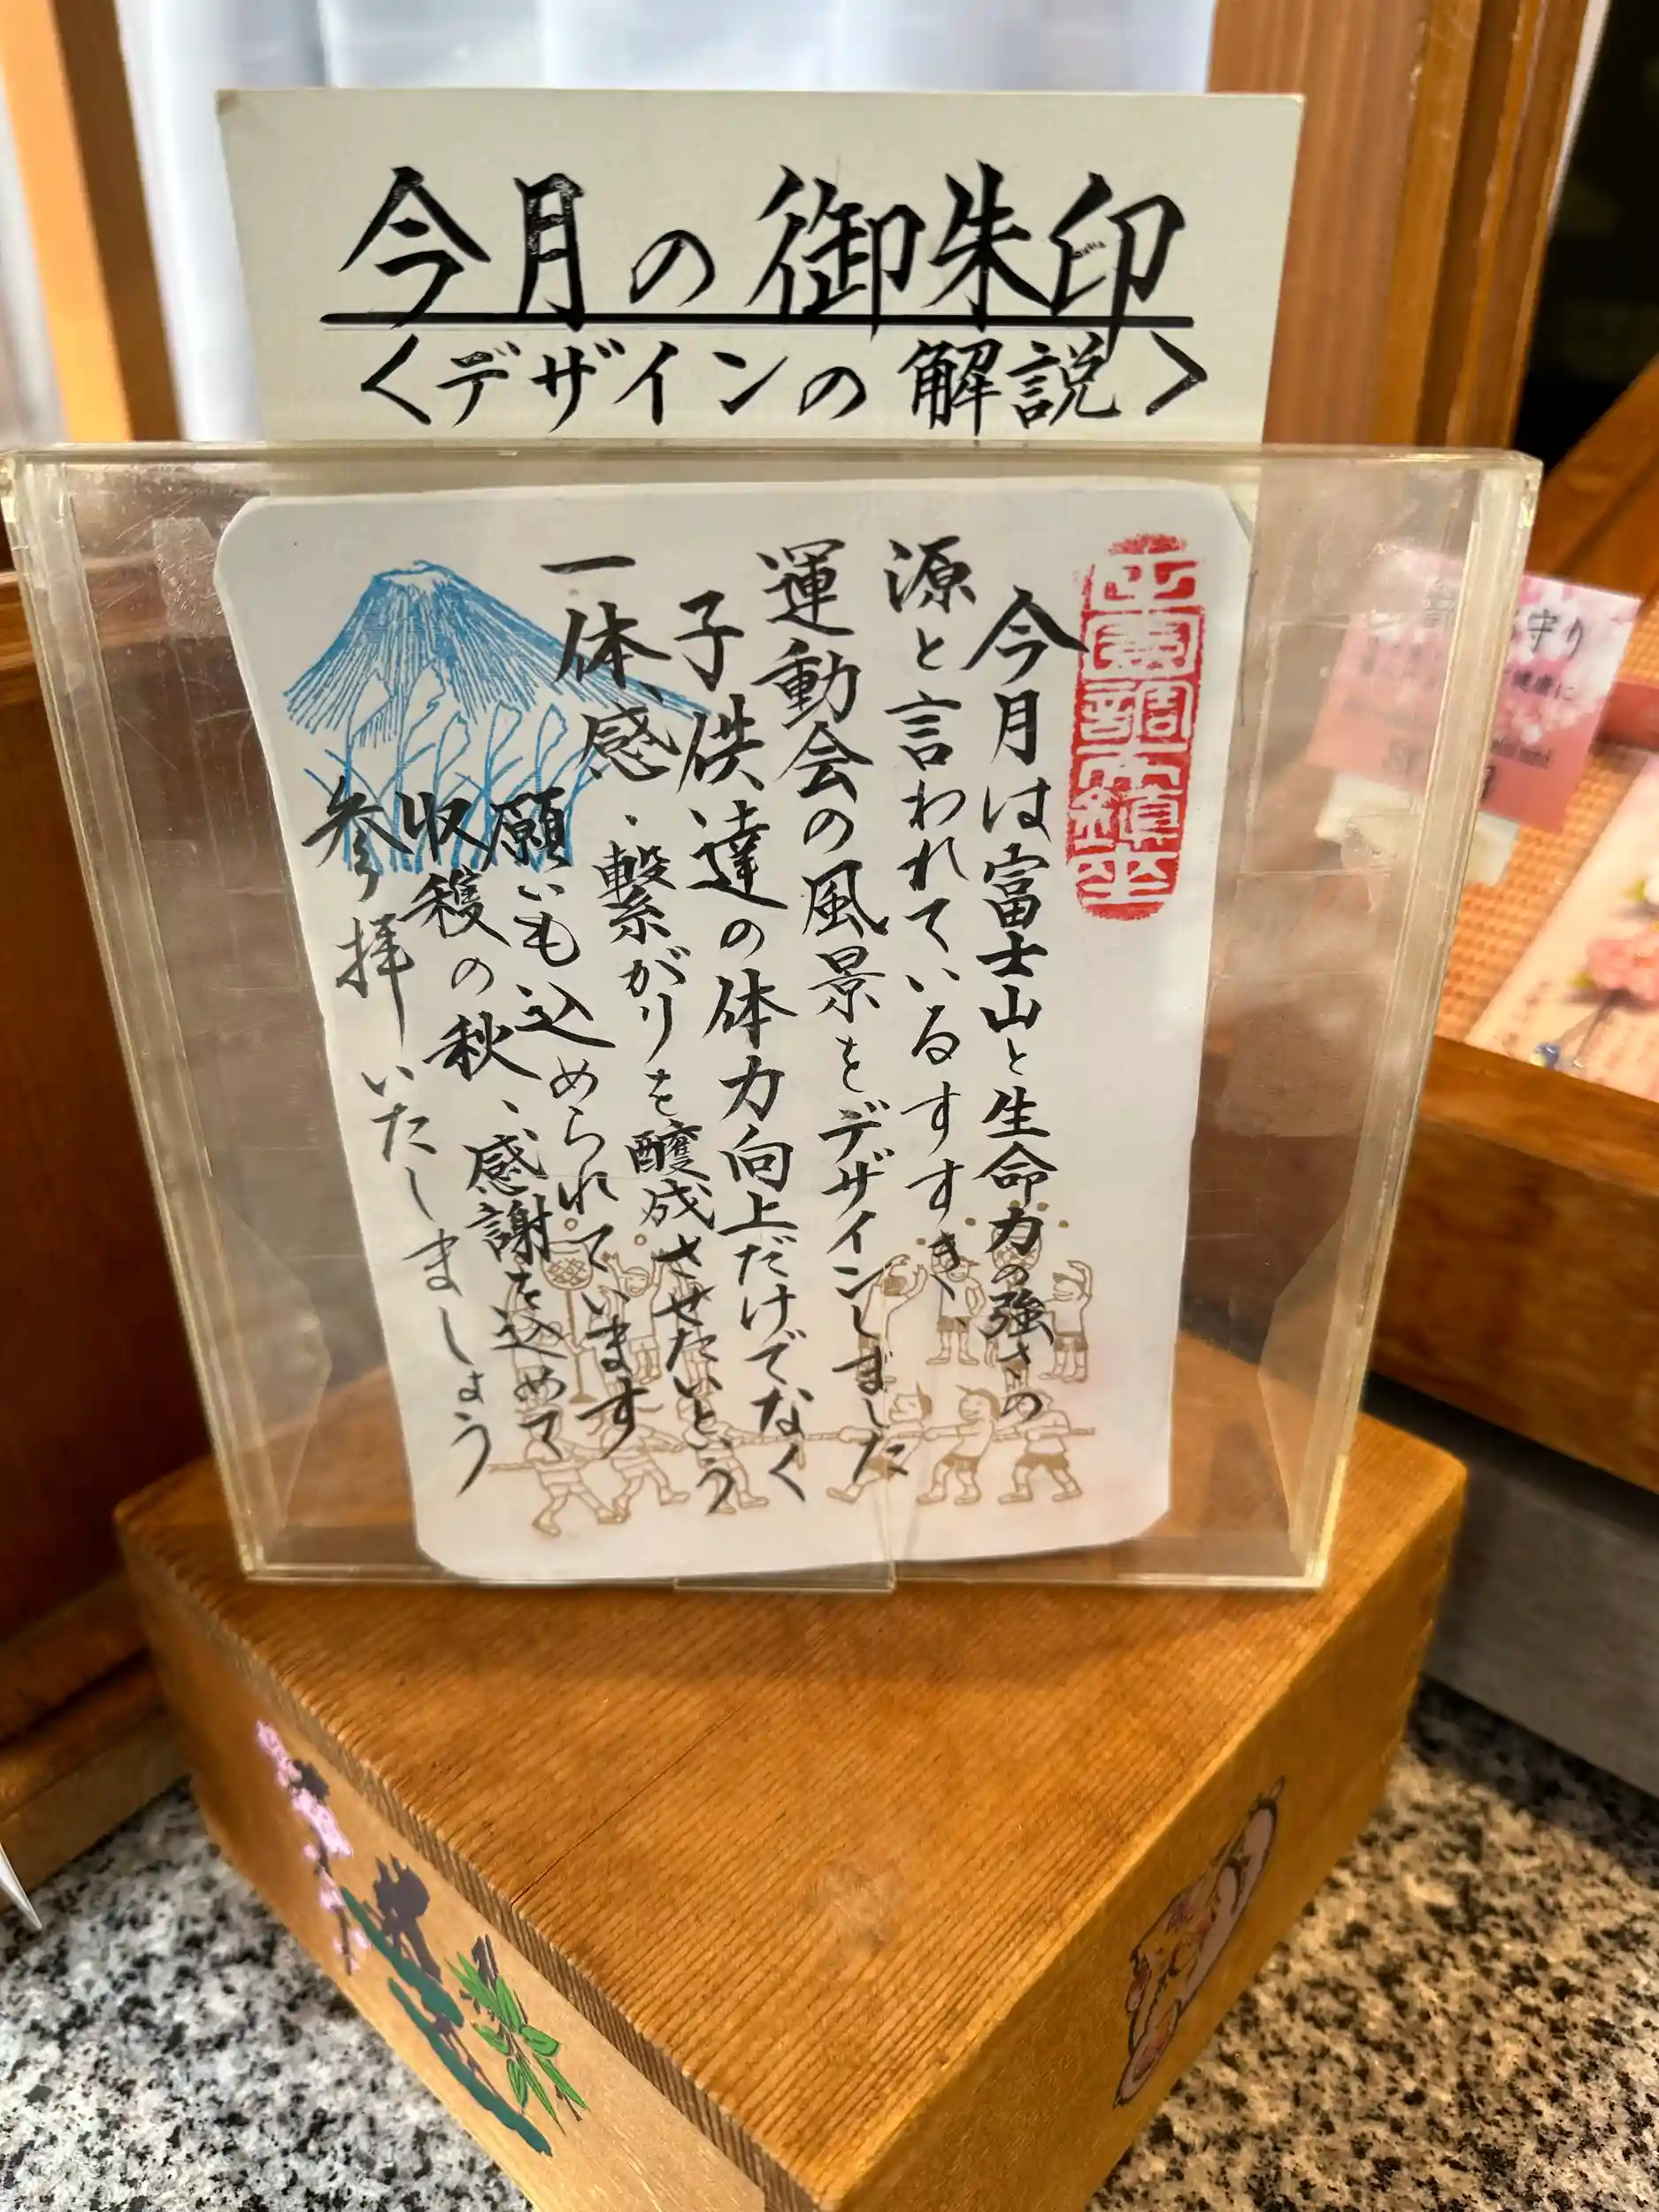 今月の御朱印
<デザインの解説>
今月は富士山と生命力の強さの
源と言われているすすき、
運動会の風景をデザインしました
子供達の体力向上だけでなく
一体感・繋がりを醸成させたいという
願いも込められています
収穫の秋、感謝を込めて
参拝いたしましょう
守り